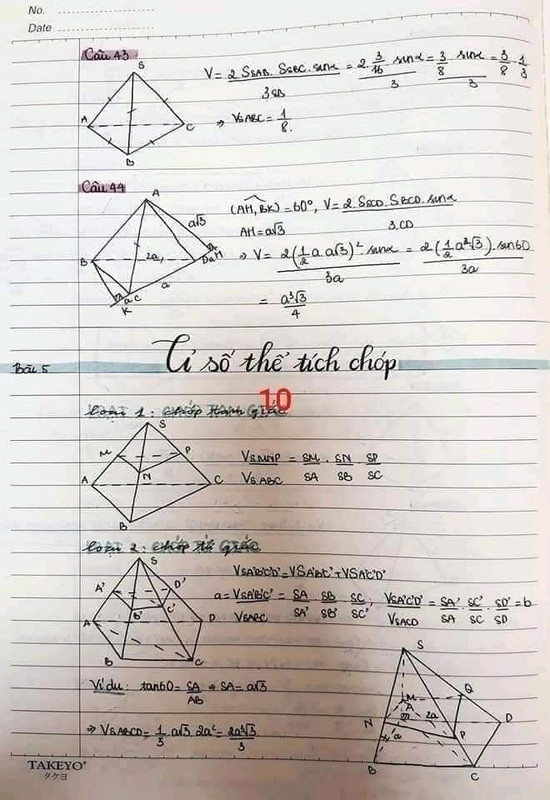 No.
Date
Câu 43
S
A
C
B
V = 2 SSAB. SSBC. sinα / 3SB = 2. 3/16 sinα / 3 = 3/8 sinα / 3 = 3/8 . 1/3
⇒ VSABC = 1/8.
Câu 44
A
a√3
B
2a
D
H
a
C
K
(AH, BK) = 60°, V = 2. SACD. SBCD. sinα / 3.CD
AH = a√3
⇒ V = 2(1/2 a. a√3)² sinα / 3a = 2(1/2 a²√3). sin60 / 3a
= a³√3 / 4
Bài 5
Tỉ số thể tích chóp
10
Loại 1: CHÓP TAM GIÁC
S
M
P
N
A
C
B
VSMNP / VSABC = SM/SA . SN/SB . SP/SC
Loại 2: CHÓP TỨ GIÁC
S
A'
D'
B'
C'
A
D
B
C
VSA'B'C'D' = VSA'B'C' + VSA'C'D'
a = VSA'B'C' / VSABC = SA/SA' SB/SB' SC/SC' ; VSA'C'D' / VSACD = SA'/SA . SC'/SC . SD'/SD = b
Ví dụ: tan60 = SA/AB ⇒ SA = a√3
⇒ VSABCD = 1/3 . a√3. 2a² = 2a³√3 / 3
S
M
Q
A
N
2a
D
P
a
B
C
TAKEYO®
タケヨ